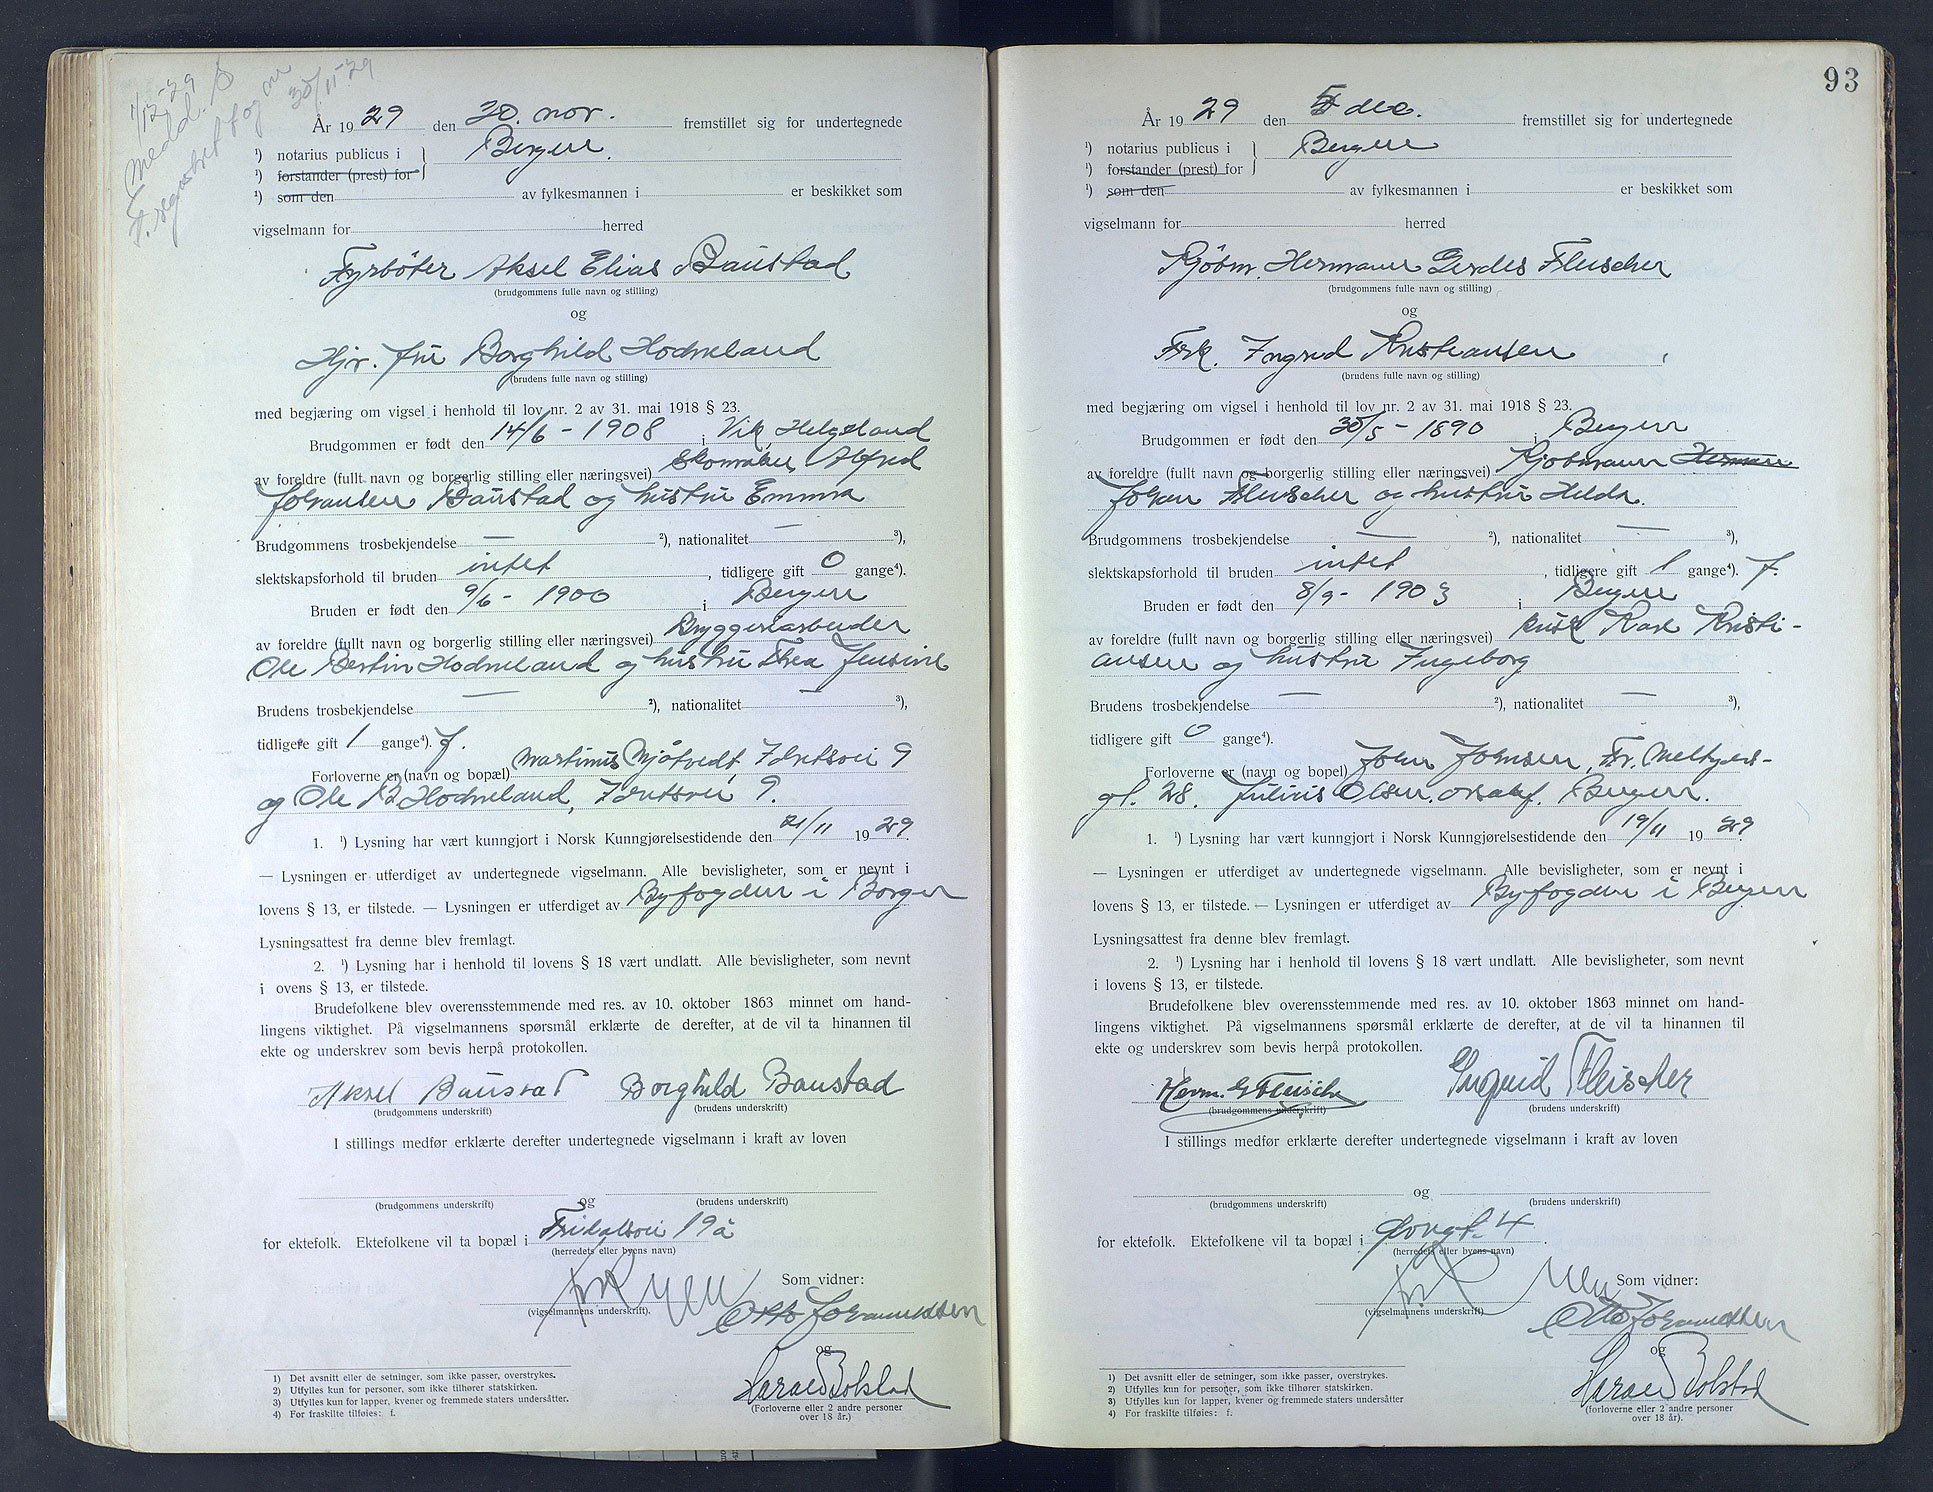 1/12-29
Medd. t.
30/11-29
År 1929 den 30. nov. fremstillet sig for undertegnede
¹) notarius publicus i Bergen.
¹) forstander (prest) for
¹) som den av fylkesmannen i er beskikket som
vigselmann for herred
Fyrbøter Aksel Elias Baustad
(brudgommens fulle navn og stilling)
og
Hjv. fru Borghild Hodneland
(brudens fulle navn og stilling)
med begjæring om vigsel i henhold til lov nr. 2 av 31. mai 1918 § 23.
Brudgommen er født den 14/6 - 1908 i Vik, Helgeland
av foreldre (fullt navn og borgerlig stilling eller næringsvei) Skomaker Alfred
Johansen Baustad og hustru Emma
Brudgommens trosbekjendelse — ²), nationalitet — ³),
slektskapsforhold til bruden intet, tidligere gift 0 gange⁴).
Bruden er født den 9/6 - 1900 i Bergen
av foreldre (fullt navn og borgerlig stilling eller næringsvei) Bryggeriarbeider
Ole Bertin Hodneland og hustru Thea Jensine
Brudens trosbekjendelse — ²), nationalitet — ³),
tidligere gift 1 gange⁴). f.
Forloverne er (navn og bopæl) Martinus Mjåtvedt, Idretsvei 9
og Ole B Hodneland, Idretsvei 9.
1. ¹) Lysning har vært kunngjort i Norsk Kunngjørelsestidende den 21/11 1929
— Lysningen er utferdiget av undertegnede vigselmann. Alle bevisligheter, som er nevnt i
lovens § 13, er tilstede. — Lysningen er utferdiget av Byfogden i Bergen
Lysningsattest fra denne blev fremlagt.
2. ¹) Lysning har i henhold til lovens § 18 vært undlatt. Alle bevisligheter, som nevnt
i ovens § 13, er tilstede.
Brudefolkene blev overensstemmende med res. av 10. oktober 1863 minnet om hand-
lingens viktighet. På vigselmannens spørsmål erklærte de derefter, at de vil ta hinannen til
ekte og underskrev som bevis herpå protokollen.
Aksel Baustad Borghild Baustad
(brudgommens underskrift) (brudens underskrift)
I stillings medfør erklærte derefter undertegnede vigselmann i kraft av loven
og
(brudgommens underskrift) (brudens underskrift)
for ektefolk. Ektefolkene vil ta bopæl i Fridalsvei 19a
(herredets eller byens navn)
Som vidner:
(vigselmannens underskrift).
Otto Johannessen
og
Harald Bolstad
(Forloverne eller 2 andre personer
over 18 år.)
1) Det avsnitt eller de setninger, som ikke passer, overstrykes.
2) Utfylles kun for personer, som ikke tilhører statskirken.
3) Utfylles kun for lapper, kvener og fremmede staters undersåtter.
4) For fraskilte tilføies: f.
93
År 1929 den 5 dec. fremstillet sig for undertegnede
¹) notarius publicus i Bergen
¹) forstander (prest) for
¹) som den av fylkesmannen i er beskikket som
vigselmann for herred
Kjøbm. Hermann Gerdes Fleischer
(brudgommens fulle navn og stilling)
og
Frk. Ingrid Kristiansen
(brudens fulle navn og stilling)
med begjæring om vigsel i henhold til lov nr. 2 av 31. mai 1918 § 23.
Brudgommen er født den 30/5 - 1890 i Bergen
av foreldre (fullt navn og borgerlig stilling eller næringsvei) Kjøbmann Herman
Johan Fleischer og hustru Helda.
Brudgommens trosbekjendelse — ²), nationalitet — ³),
slektskapsforhold til bruden intet, tidligere gift 1 gange⁴). f.
Bruden er født den 8/9 - 1903 i Bergen
av foreldre (fullt navn og borgerlig stilling eller næringsvei) Karl Kristi-
ansen og hustru Ingeborg
Brudens trosbekjendelse — ²), nationalitet — ³),
tidligere gift 0 gange⁴).
Forloverne er (navn og bopel) John Johnsen, Fr. Meltzers-
gt. 28. Julius Olsen. Bergen.
1. ¹) Lysning har vært kunngjort i Norsk Kunngjørelsestidende den 19/11 1929
— Lysningen er utferdiget av undertegnede vigselmann. Alle bevisligheter, som er nevnt i
lovens § 13, er tilstede. — Lysningen er utferdiget av Byfogden i Bergen
Lysningsattest fra denne blev fremlagt.
2. ¹) Lysning har i henhold til lovens § 18 vært undlatt. Alle bevisligheter, som nevnt
i lovens § 13, er tilstede.
Brudefolkene blev overensstemmende med res. av 10. oktober 1863 minnet om hand-
lingens viktighet. På vigselmannens spørsmål erklærte de derefter, at de vil ta hinannen til
ekte og underskrev som bevis herpå protokollen.
Herm. G Fleischer Ingrid Fleischer
(brudgommens underskrift) (brudens underskrift)
I stillings medfør erklærte derefter undertegnede vigselmann i kraft av loven
og
(brudgommens underskrift) (brudens underskrift)
for ektefolk. Ektefolkene vil ta bopæl i 4.
(herredets eller byens navn)
Som vidner:
(vigselmannens underskrift)
Otto Johannessen
og
Harald Bolstad
(forloverne eller 2 andre personer
over 18 år).
1) Det avsnitt eller de setninger, som ikke passer, overstrykes.
2) Utfylles kun for personer, som ikke tilhører statskirken.
3) Utfylles kun for lapper, kvener og fremmede staters undersåtter
4) For fraskilte tilføies: f.